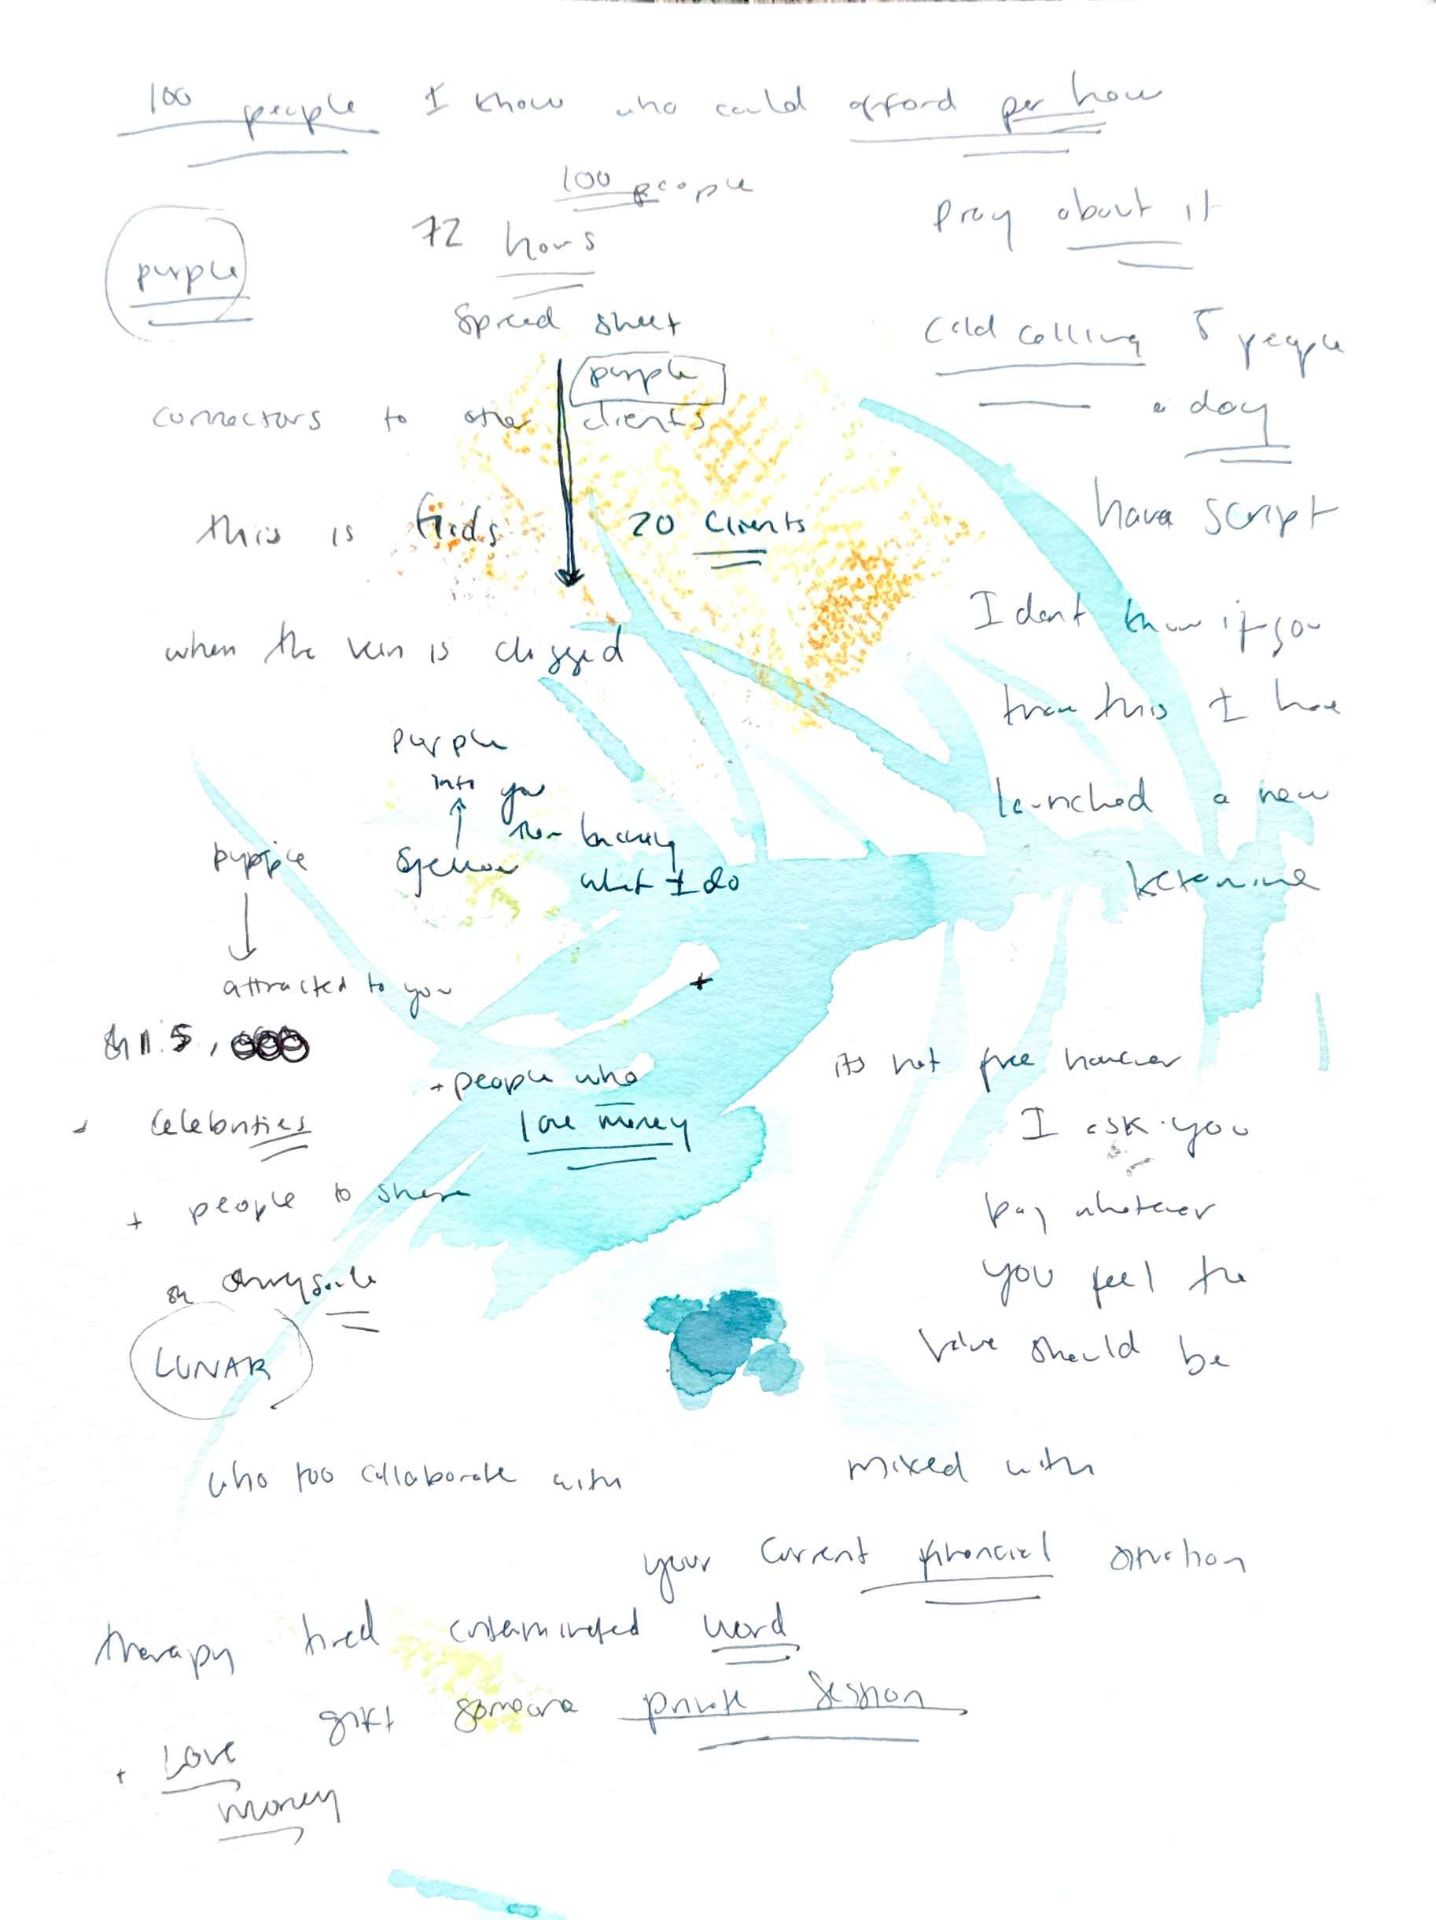 100 people I know who could afford per hour
100 people
72 hours
pray about it
purple
Spread sheet
Cold calling 5 people
a day
purple
connectors to other clients
have script
this is
20 clients
I dont know if you
when the vein is clogged
know this I have
purple
into you
launched a new
then
what I do
ketamine
purple
yellow
attracted to you
its not free however
+ people who
love money
I ask you
celebrities
+ people to share
pay whatever
on
you feel the
LUNAR
value should be
who too collaborate with
mixed with
your current financial situation
therapy tired contaminated word
gift someone private session
+ Love
money